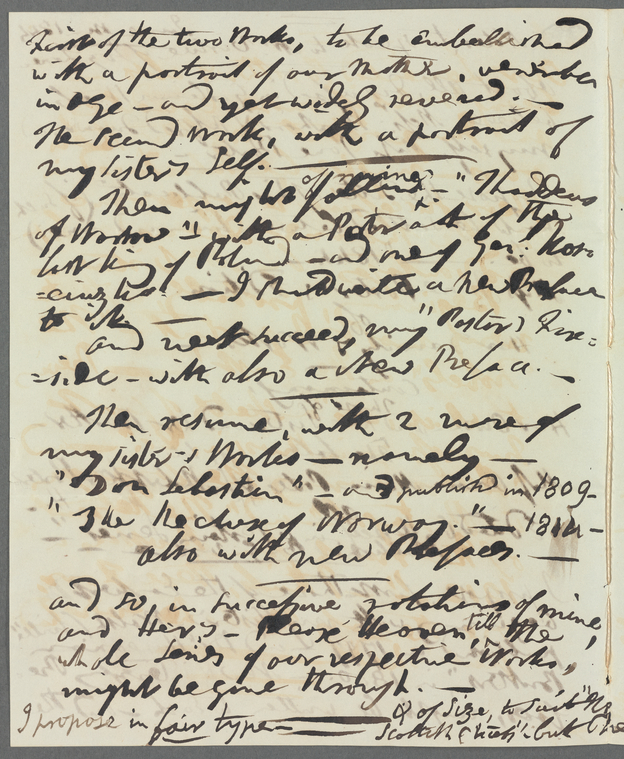 First of the two Works, to be embellished
with a portrait of our Mother, venerable
in Age – and yet widely revered. –
The second Work, with a portrait of
my sister's self. –
Then might follow – of mine "Thaddeus
of Warsaw" – with a Portrait of the
last king of Poland – and one of Gen: Kos=
=ciuzko. – I should write a new Preface
to it –
and next succeed, my "Pastor's Fire=
=side – with also a New Preface. –
Then resume, with 2 more of
my sister's Works – namely –
"Don Sebastian" – and publish in 1809 –
"The Recluse of Norway." – 1814 –
also with new Prefaces. –
and so, in successive rotations of mine,
and Her's – Please Heaven, till the
whole Series of our respective Works,
might be gone through. –
I propose in fair type – & of Size, to suit the
Scottish – but